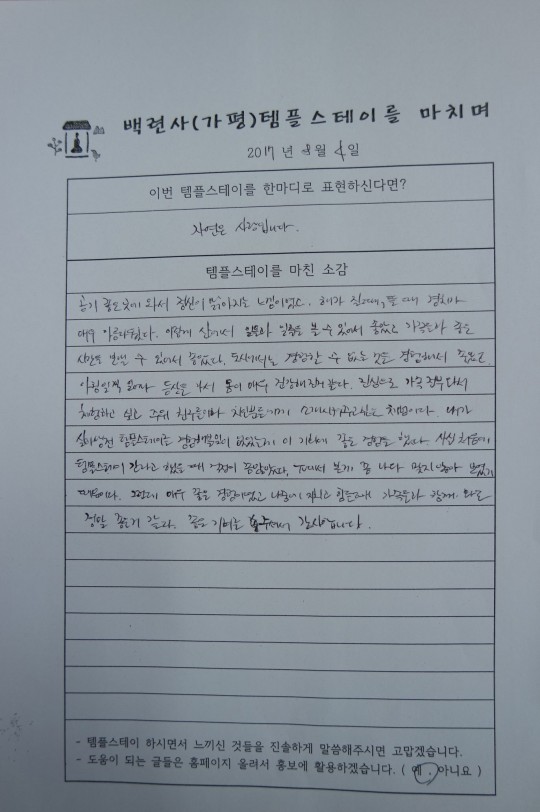 백련사(가평)템플스테이를 마치며
2017년 8월 4일
이번 템플스테이를 한마디로 표현하신다면?
자연은 사랑입니다.
템플스테이를 마친 소감
공기 좋은 곳에 와서 정신이 맑아지는 느낌이었소. 해가 질때, 뜰 때 경치가
매우 아름다웠다. 이렇게 산에서 일몰과 일출을 볼 수 있어서 좋았고 가족들과 좋은
시간을 보낼 수 있어서 좋았다. 도시에서는 경험할 수 없는 것을 경험해서 좋았고
아침일찍 일어나 등산을 해서 몸이 매우 건강해진거 같다. 진심으로 가족 전부 다시
체험하고 싶고 주위 친구들이나 지인분들에게 소개시켜주고싶은 체험이다. 내가
살아생전 템플스테이를 경험해본적이 없었는데 이 기회에 좋은 경험을 했다. 사실 처음에
템플스테이 간다라고 했을 때 걱정이 많았었다. TV에서 볼게 좀 나다 멋지 않아 보였기
때문이다. 그런데 매우 좋은 경험이었고 나중에 지치고 힘들때 가족들과 함께 와도
정말 좋을거 같다. 좋은 기억을 주셔서 감사합니다.
- 템플스테이 하시면서 느끼신 것들을 진솔하게 말씀해주시면 고맙겠습니다.
- 도움이 되는 글들은 홈페이지 올려서 홍보에 활용하겠습니다. ( 예 , 아니요 )